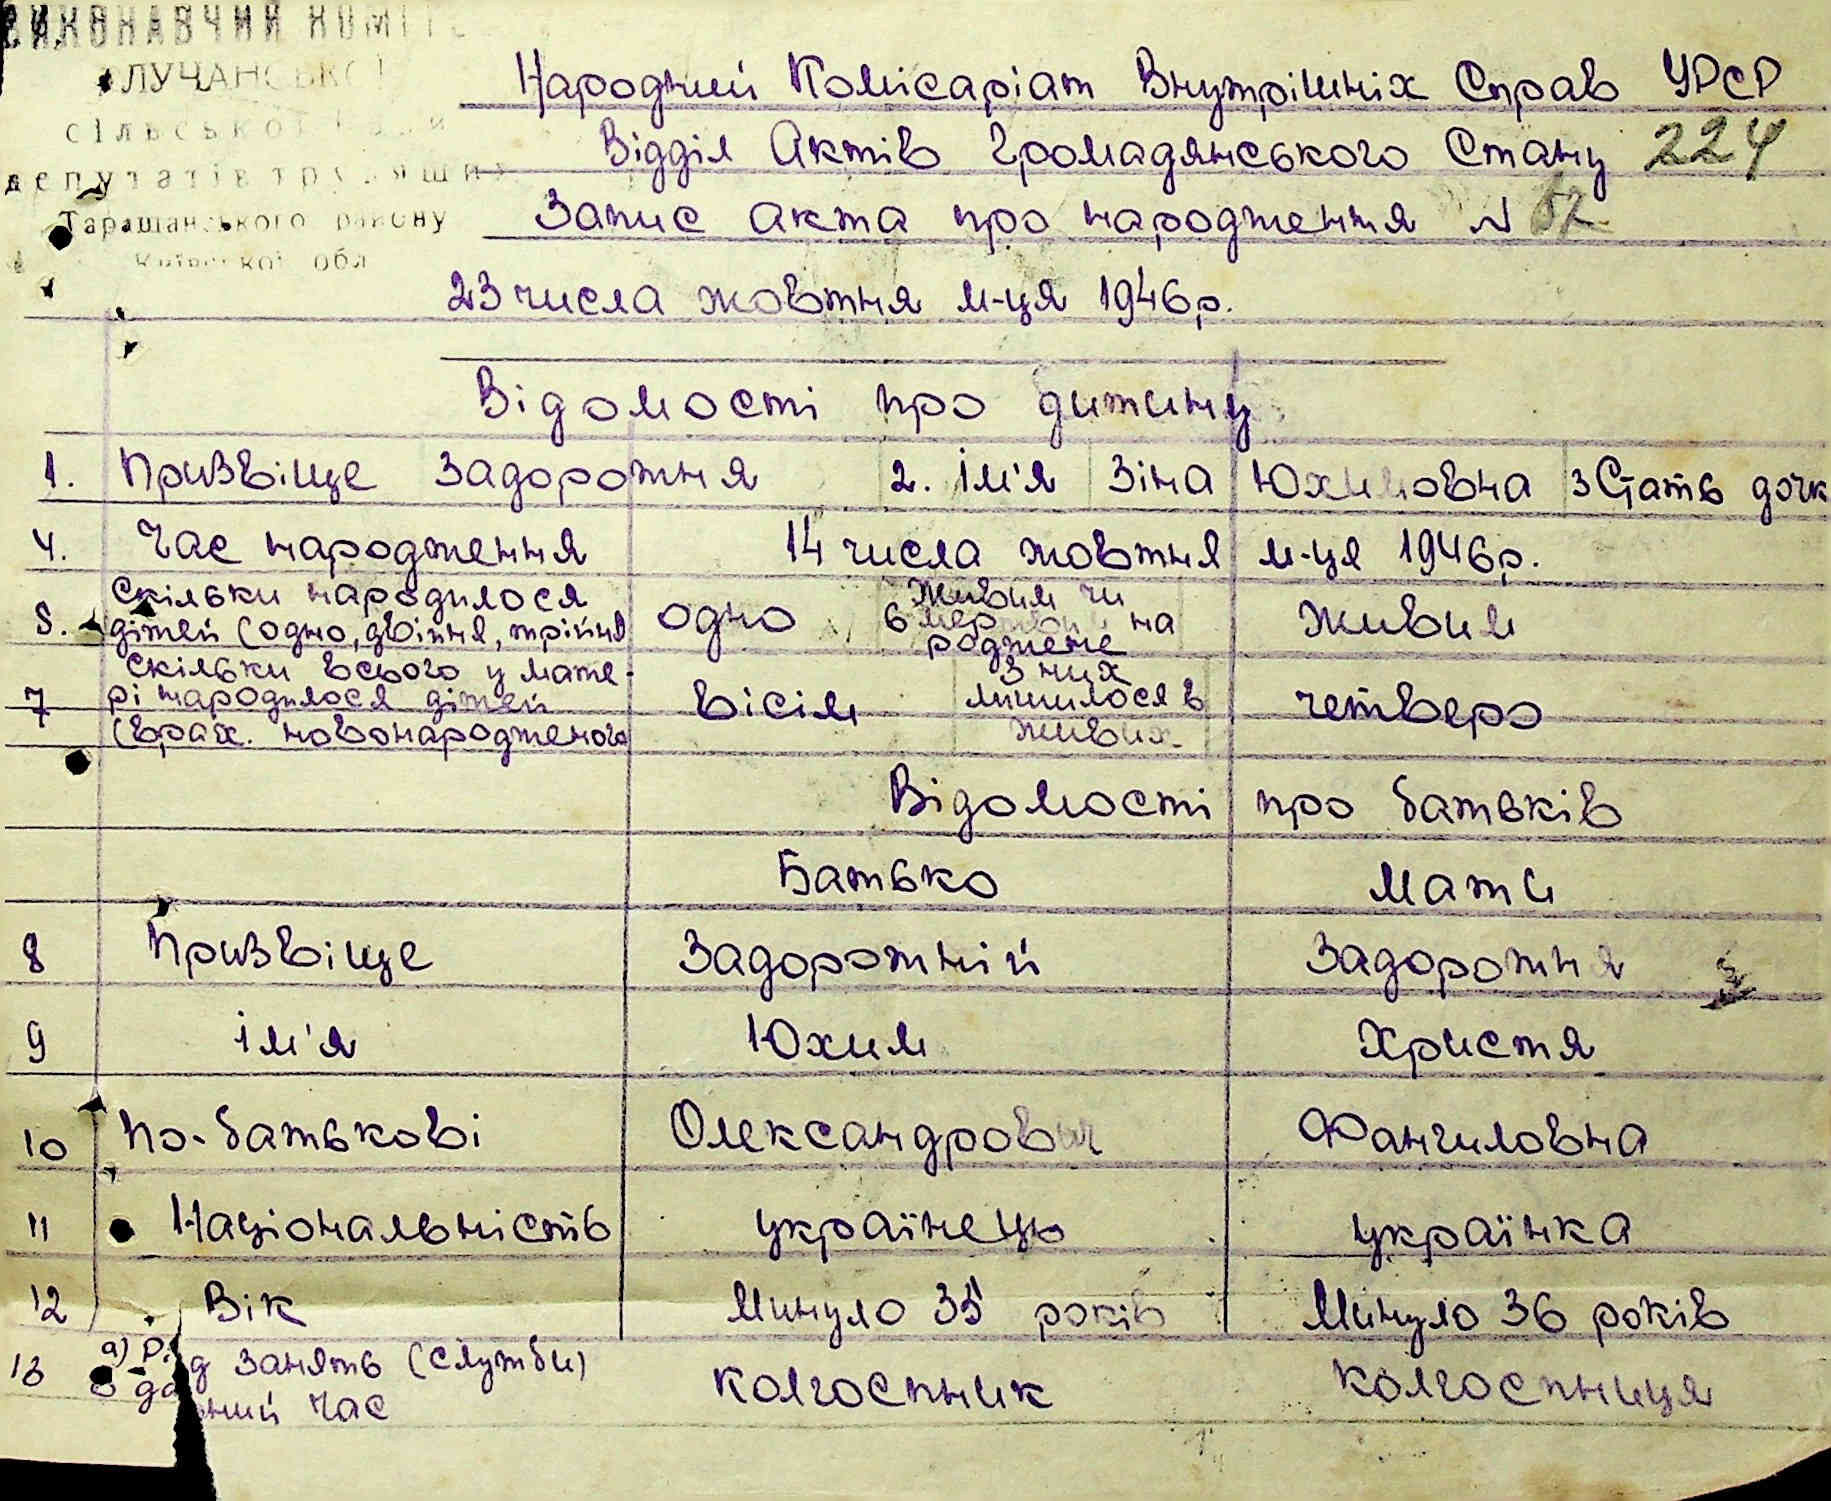 ВИКОНАВЧИЙ КОМІТЕ
ЛУЧАНСЬКОЇ
сільської Ради
депутатів трудящих
Таращанського району
Київської обл
Народний Комісаріат Внутрішніх Справ УРСР
Відділ Актів Громадянського Стану 224
Запис акта про народження N 52
23 числа жовтня м-ця 1946р.
Відомості про дитину
1. Призвіще Задорожня 2. Ім'я Зіна Юхимовна 3 Стать дочк
4. Час народження 14 числа жовтня м-ця 1946р.
5. Скільки народилося дітей (одно, двійня, трійня одно 6 Живим чи мертвим народжене Живим
7 Скільки всього у матері народилося дітей (врах. новонародженого вісім З них лишилося в живих четверо
Відомості про батьків
Батько Мати
8 Призвіще Задорожній Задорожня
9 Ім'я Юхим Христя
10 По-батькові Олександрович Фанчиловна
11 Національність українець українка
12 Вік Минуло 35 років Минуло 36 років
13 а) Рід занять (служби) колгоспник колгоспниця
час